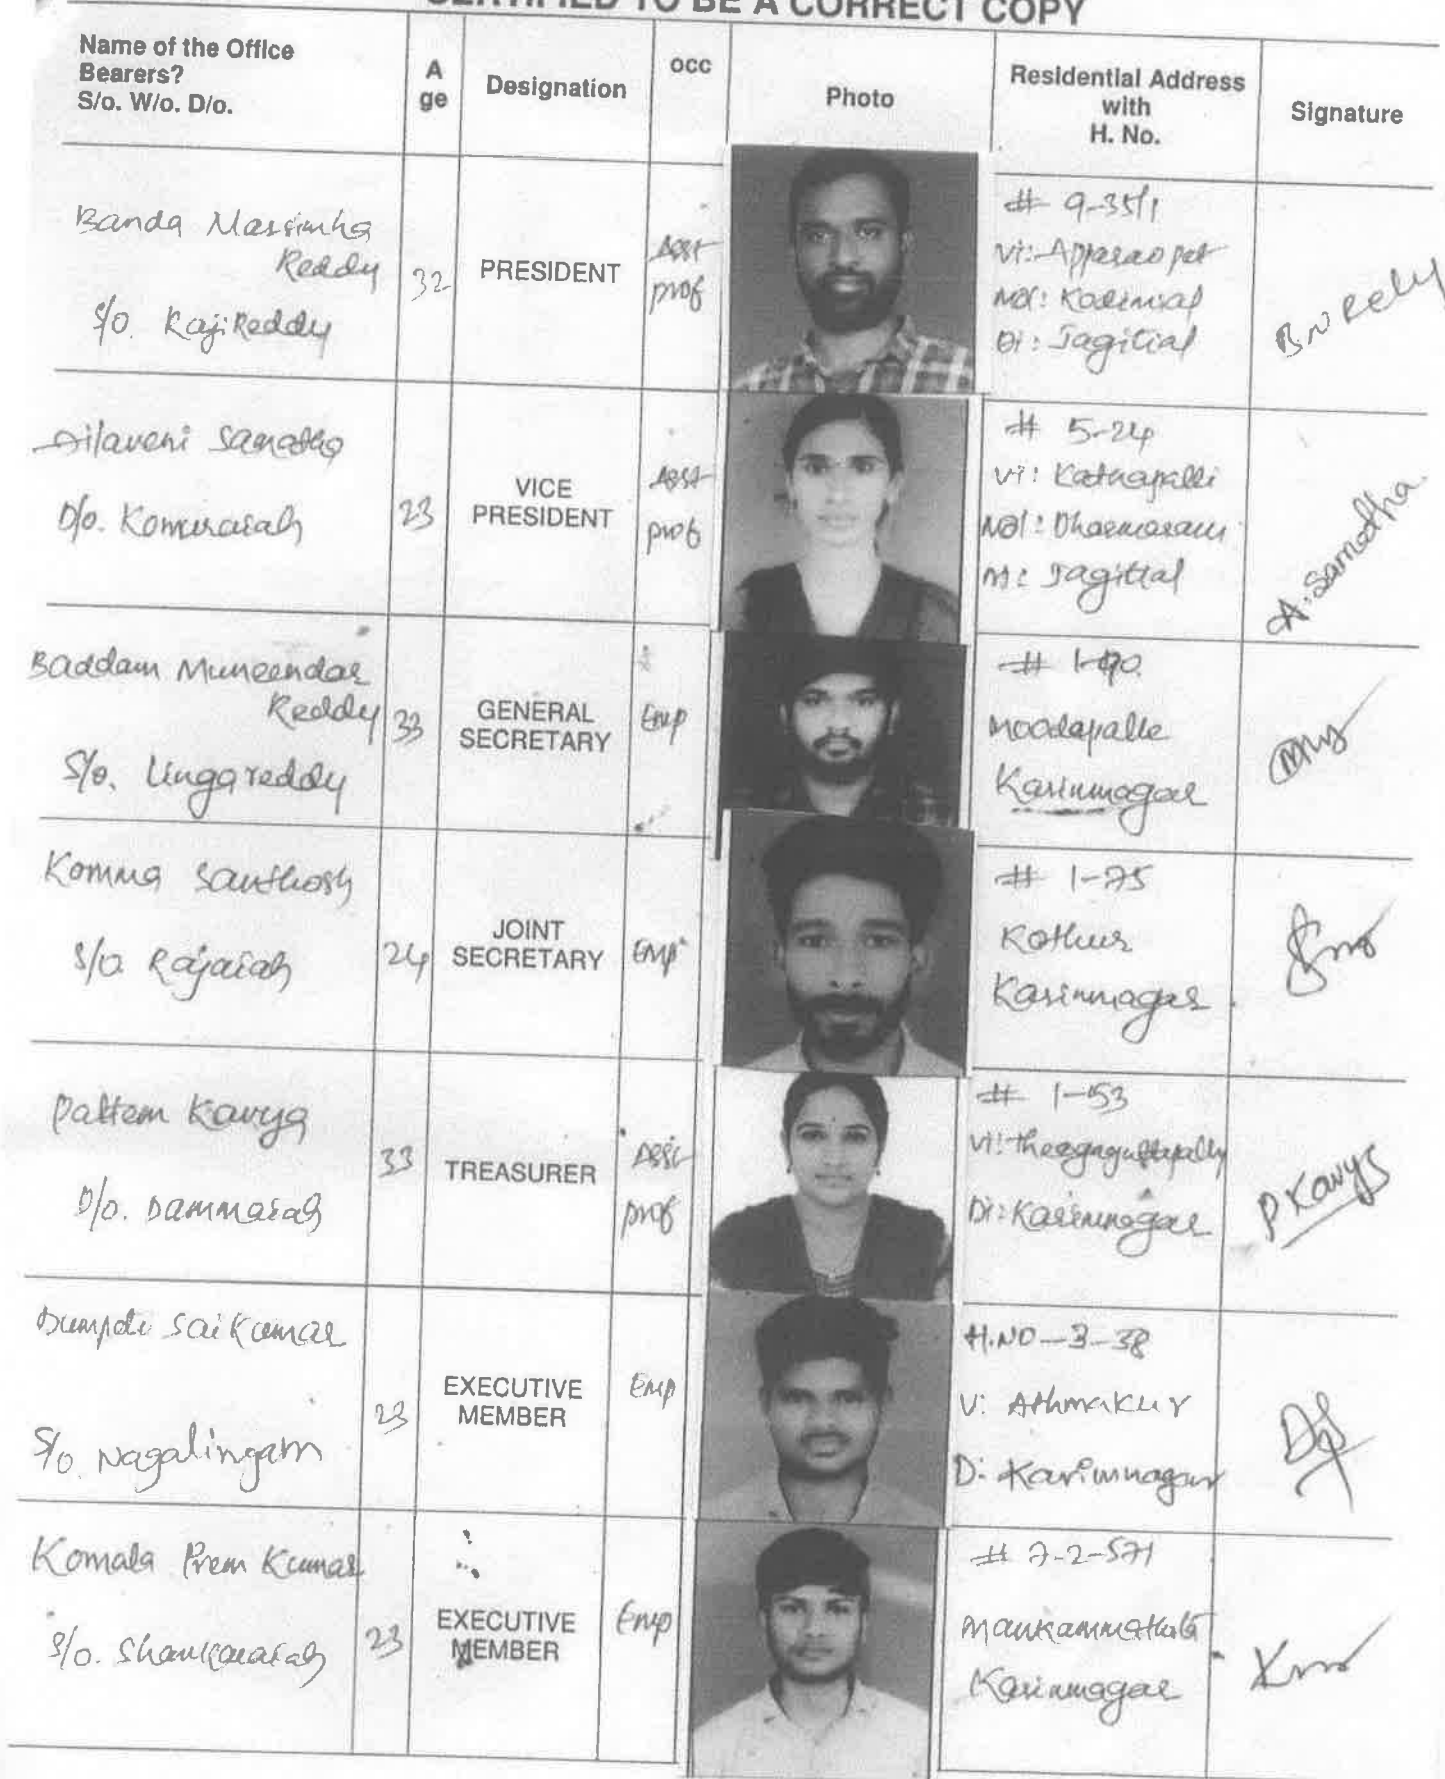 CERTIFIED TO BE A CORRECT COPY
Name of the Office
Bearers?
S/o. W/o. D/o.
A
ge
Designation
occ
Photo
Residential Address
with
H. No.
Signature
Banda Narsimha
Reddy
S/o. Raji Reddy
32
PRESIDENT
Asst
prof
# 9-35/1
Vi: Apparaopet
Mdl: Kodimial
Di: Jagitial
B N Reddy
Ailaveni Samatha
D/o. Komuraiah
23
VICE
PRESIDENT
Asst
prof
# 5-24
Vi: Kathapalli
Mdl: Dharmaram
Jagitial
A. Samatha
Baddam Muneendar
Reddy
S/o. Lingareddy
33
GENERAL
SECRETARY
Emp
Karimnagar
Komma Santhosh
S/o Rajaiah
24
JOINT
SECRETARY
Emp
# 1-75
Kothur
Karimnagar
Pattem Kavya
D/o. Dammaiah
33
TREASURER
Asst
prof
# 1-53
Di: Karimnagar
P Kavya
Dumpeti Saikumar
S/o. Nagalingam
23
EXECUTIVE
MEMBER
Emp
H.NO-3-38
V: Athmakur
D: Karimnagar
Komala Prem Kumar
S/o. Shankaraiah
23
EXECUTIVE
MEMBER
Emp
# 7-2-571
Mankammathota
Karimnagar